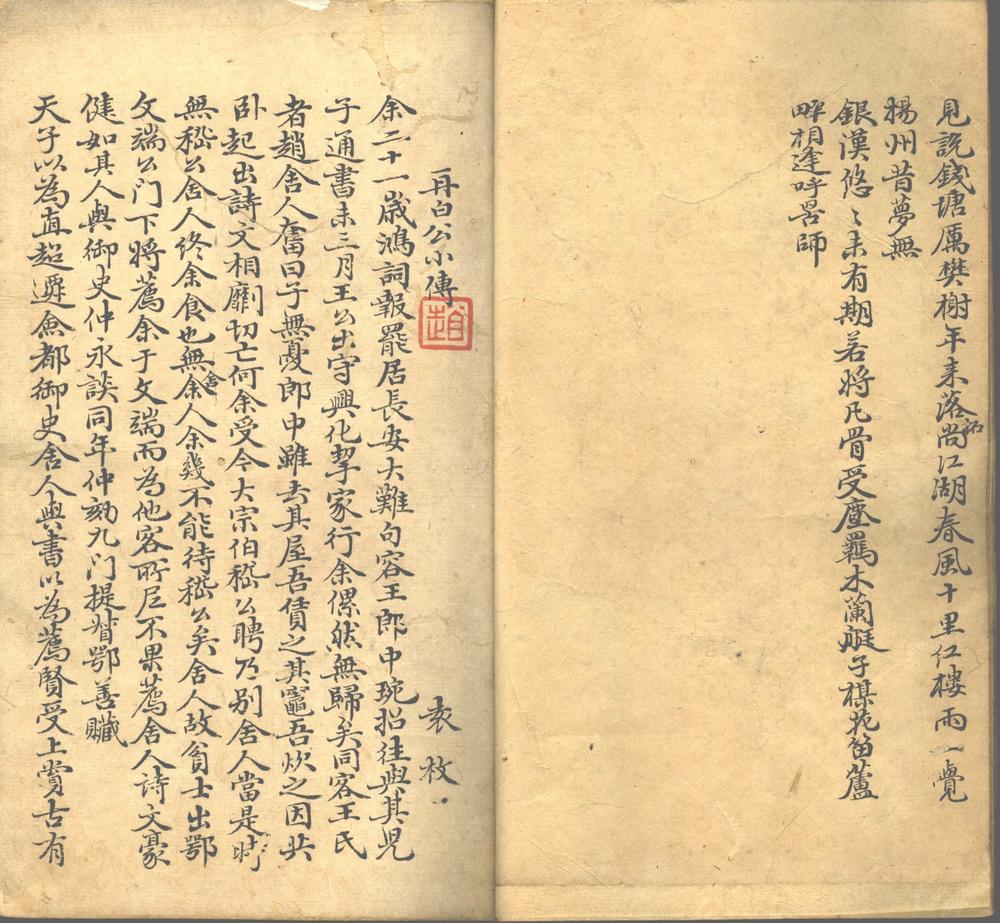 見說錢塘厲樊榭年来落拓尚江湖春風十里红樓雨一覺
揚州昔夢無
銀漢悠〻未有期若將凡骨受塵羈木蘭艇子棋花笛蘆
畔相逢呼師
再白公小傳 趙 袁枚
余二十一歲鴻詞報罷居長安大難句容王郎中琬招往與其兒
子通書未三月王公出守興化挈家行余傫然無歸矣同客王氏
者趙舍人奮曰子無憂郎中雖去其屋吾賃之其竈吾炊之因共
卧起出詩文相劘切亡何余受今大宗伯嵇公聘乃别舍人當是时
無嵇公舍人终余食也無舍人余幾不能待嵇公矣舍人故貧士出鄂
文端公门下將薦余于文端而為他客所尼不果薦舍人詩文豪
健如其人與御史仲永談同年仲劾九门提督鄂善贜
天子以為直超遷僉都御史舍人與書以為薦賢受上賞古有